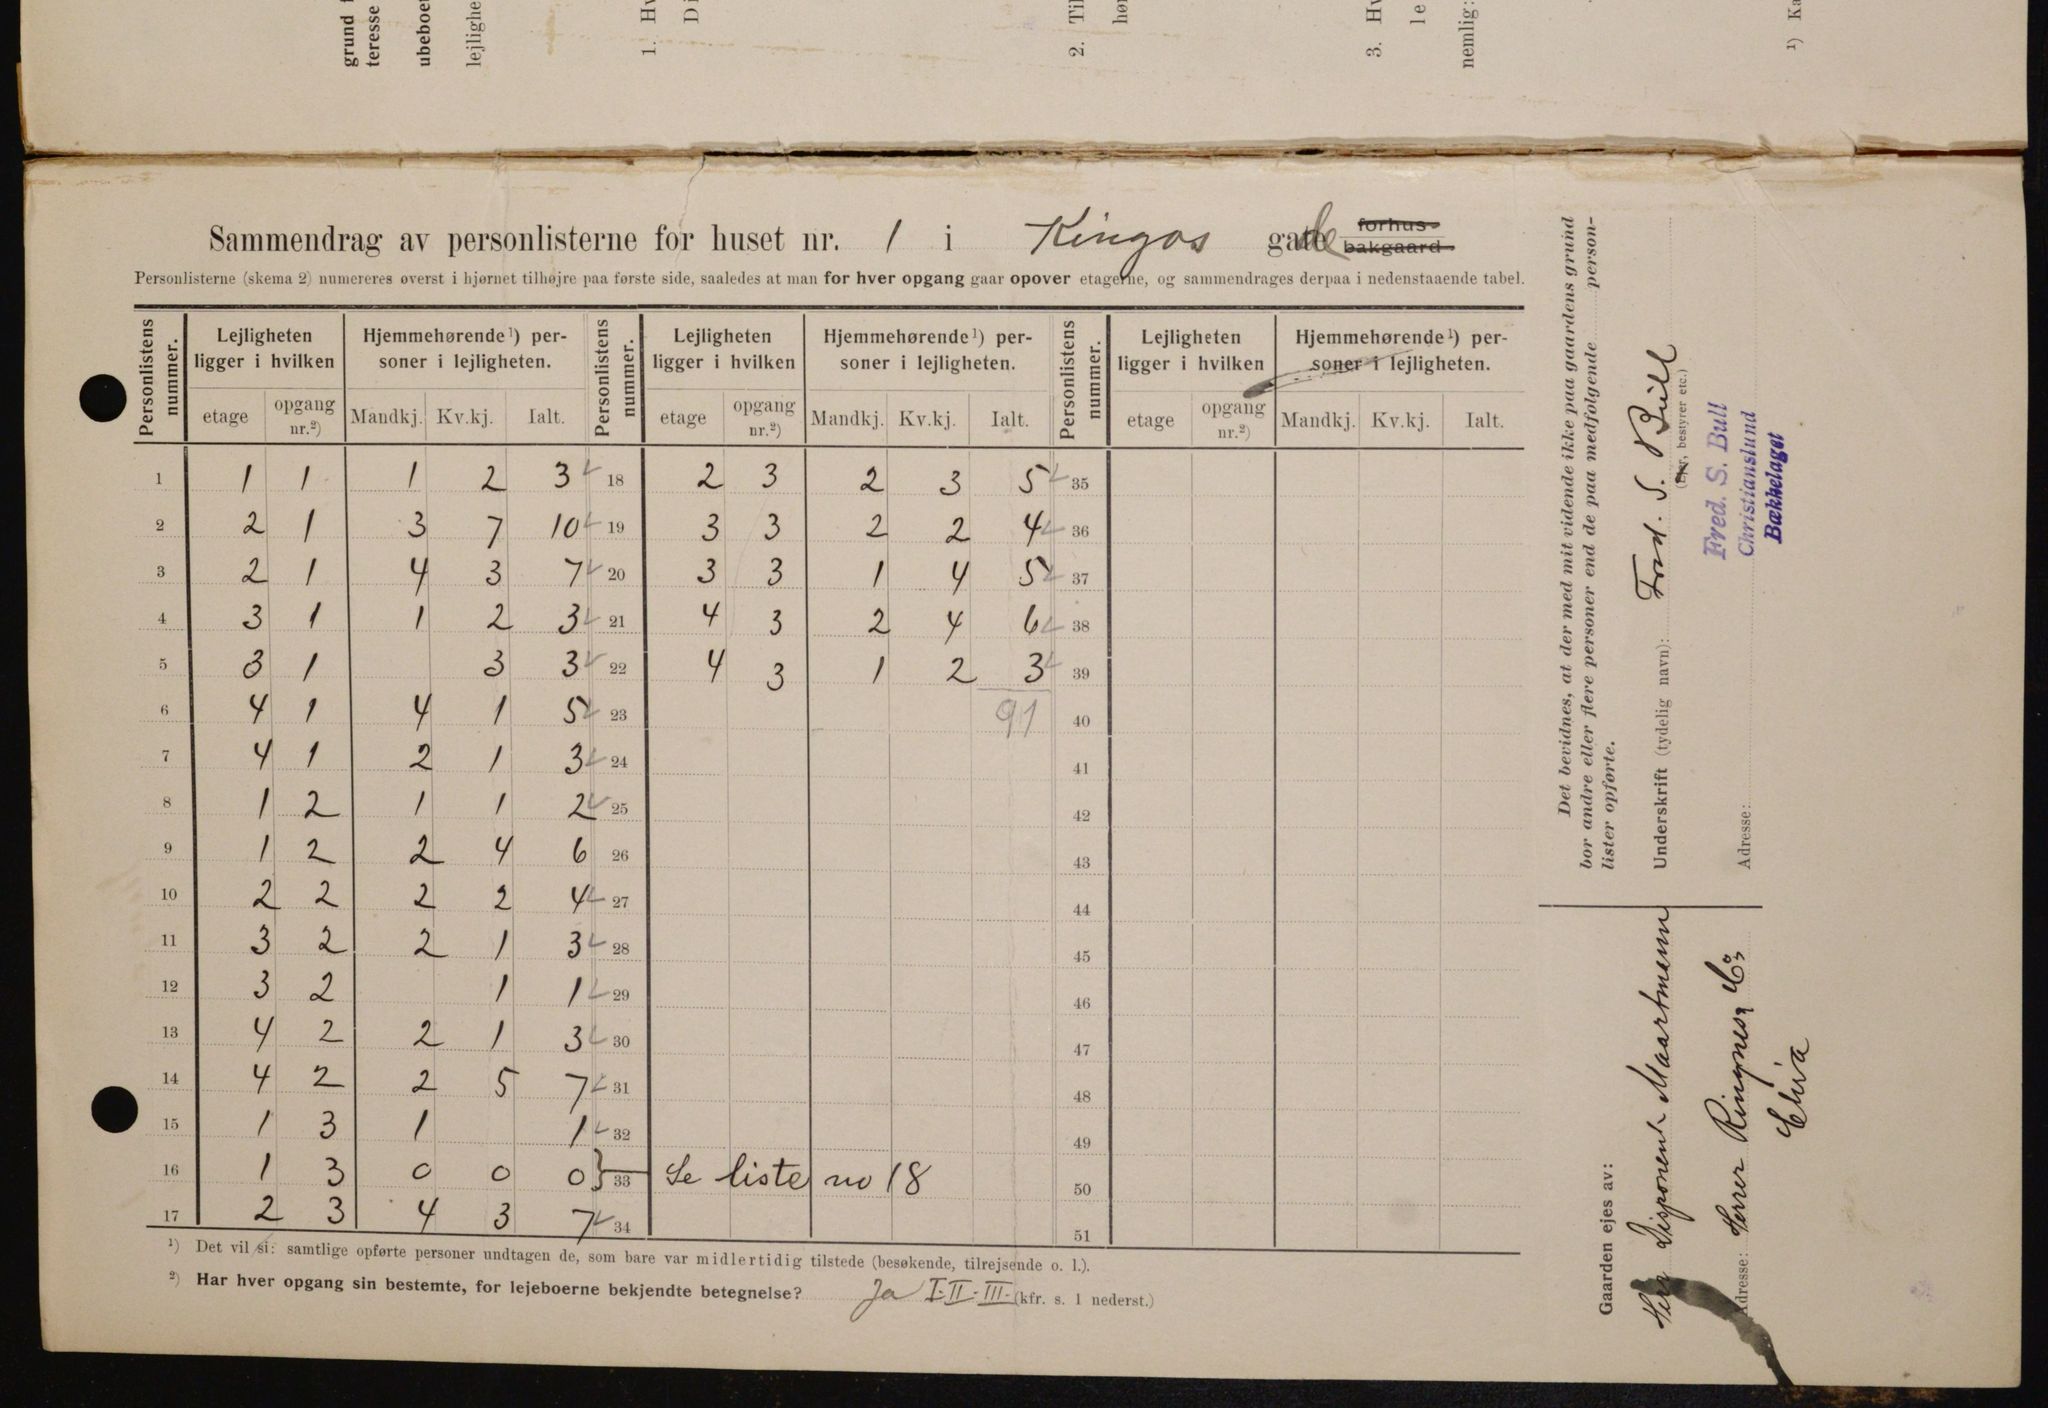 grund f
teresse
ubeboet
lejlighe
1. Hv
Di
2. Til
hør
3. Hv
le
nemlig:
¹) Ka
Sammendrag av personlisterne for huset nr. 1 i Kingos gate de forhus bakgaard
Personlisterne (skema 2) numereres øverst i hjørnet tilhøjre paa første side, saaledes at man for hver opgang gaar opover etagerne, og sammendrages derpaa i nedenstaaende tabel.
Personlistens nummer. Lejligheten ligger i hvilken Hjemmehørende¹) personer i lejligheten. Personlistens nummer. Lejligheten ligger i hvilken Hjemmehørende¹) personer i lejligheten. Personlistens nummer. Lejligheten ligger i hvilken Hjemmehørende¹) personer i lejligheten.
etage opgang nr.²) Mandkj. Kv.kj. Ialt. etage opgang nr.²) Mandkj. Kv.kj. Ialt. etage opgang nr.²) Mandkj. Kv.kj. Ialt.
1 1 1 1 2 3 18 2 3 2 3 5 35
2 2 1 3 7 10 19 3 3 2 2 4 36
3 2 1 4 3 7 20 3 3 1 4 5 37
4 3 1 1 2 3 21 4 3 2 4 6 38
5 3 1 3 3 22 4 3 1 2 3 39
6 4 1 4 1 5 23 91 40
7 4 1 2 1 3 24 41
8 1 2 1 1 2 25 42
9 1 2 2 4 6 26 43
10 2 2 2 2 4 27 44
11 3 2 2 1 3 28 45
12 3 2 1 1 29 46
13 4 2 2 1 3 30 47
14 4 2 2 5 7 31 48
15 1 3 1 1 32 49
16 1 3 0 0 0 } 33 Se liste no 18 50
17 2 3 4 3 7 34 51
¹) Det vil si: samtlige opførte personer undtagen de, som bare var midlertidig tilstede (besøkende, tilrejsende o. l.).
²) Har hver opgang sin bestemte, for lejeboerne bekjendte betegnelse? Ja I. II. III. (kfr. s. 1 nederst.)
Det bevidnes, at der med mit vidende ikke paa gaardens grund
bor andre eller flere personer end de paa medfølgende person-
lister opførte.
Underskrift (tydelig navn): Fred. S. Bull
(Ejer, bestyrer etc.)
Fred. S. Bull
Christianslund
Bækkelaget
Adresse:
Gaarden ejes av:
Herr Disponent Maartmann
Adresse: Herrer Ringnes & Co
Chr'a